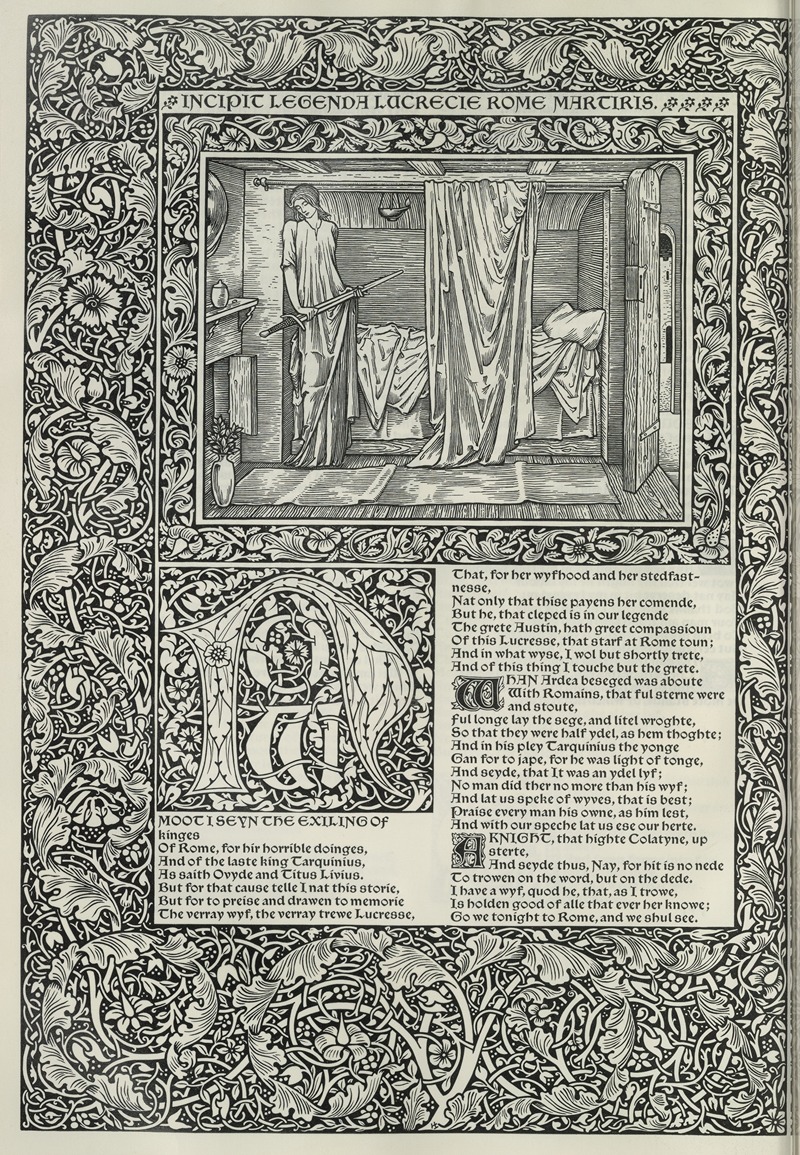 INCIPIT LEGENDA LUCRECIE ROME MARTIRIS.
NOW
MOOT I SEYN THE EXILING OF
kinges
Of Rome, for hir horrible doinges,
And of the laste king Tarquinius,
As saith Ovyde and Titus Livius.
But for that cause telle I nat this storie,
But for to preise and drawen to memorie
The verray wyf, the verray trewe Lucresse,
That, for her wyfhood and her stedfast-
nesse,
Nat only that thise payens her comende,
But he, that cleped is in our legende
The grete Austin, hath greet compassioun
Of this Lucresse, that starf at Rome toun;
And in what wyse, I wol but shortly trete,
And of this thing I touche but the grete.
WHAN Ardea beseged was aboute
With Romains, that ful sterne were
and stoute,
Ful longe lay the sege, and litel wroghte,
So that they were half ydel, as hem thoghte;
And in his pley Tarquinius the yonge
Gan for to jape, for he was light of tonge,
And seyde, that It was an ydel lyf;
No man did ther no more than his wyf;
And lat us speke of wyves, that is best;
Praise every man his owne, as him lest,
And with our speche lat us ese our herte.
A KNIGHT, that highte Colatyne, up
sterte,
And seyde thus, Nay, for hit is no nede
To trowen on the word, but on the dede.
I have a wyf, quod he, that, as I trowe,
Is holden good of alle that ever her knowe;
Go we tonight to Rome, and we shul see.